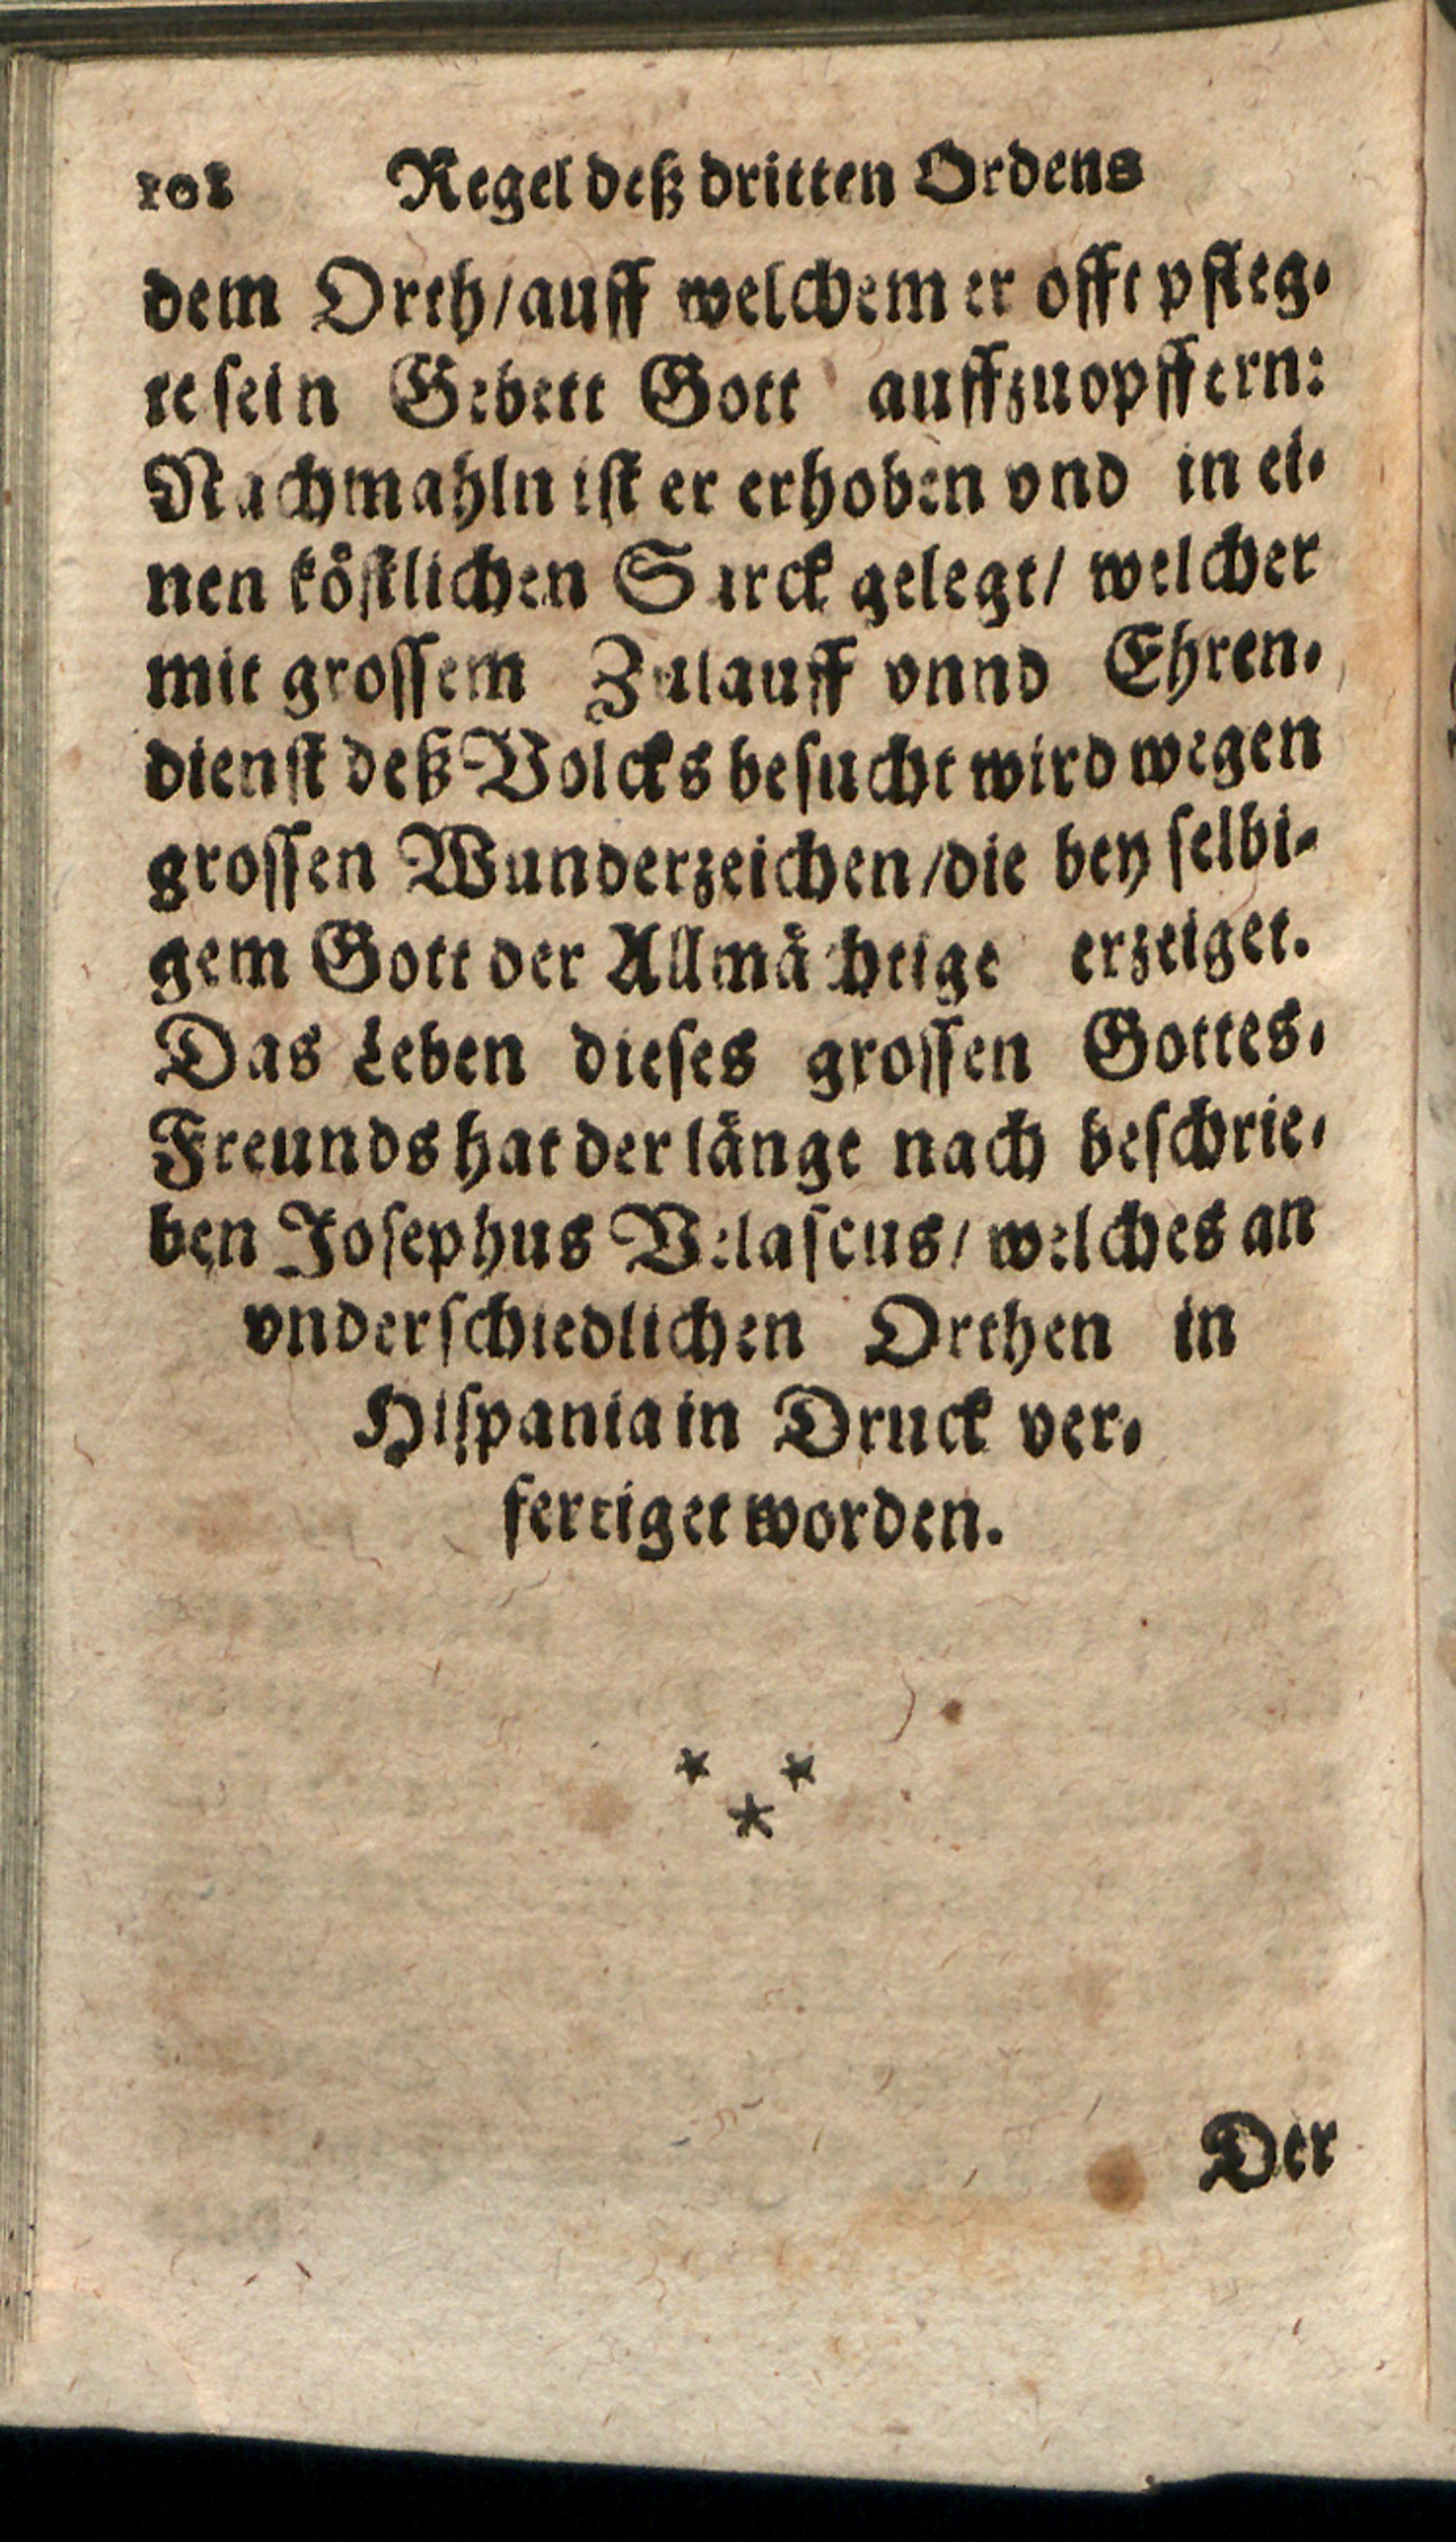 108 Regel deß dritten Ordens
dem Orth/auff welchem er offt pfleg-
te sein Gebett Gott auffzuopffern:
Nachmahln ist er erhoben vnd in ei-
nen köstlichen Sarck gelegt/ welcher
mit grossem Zulauff vnnd Ehren-
dienst deß Volcks besucht wird wegen
grossen Wunderzeichen/die bey selbi-
gem Gott der Allmächtige erzeiget.
Das Leben dieses grossen Gottes-
Freunds hat der länge nach beschrie-
ben Josephus Velascus/ welches an
vnderschiedlichen Orthen in
Hispania in Druck ver-
fertiget worden.
* *
*
Der